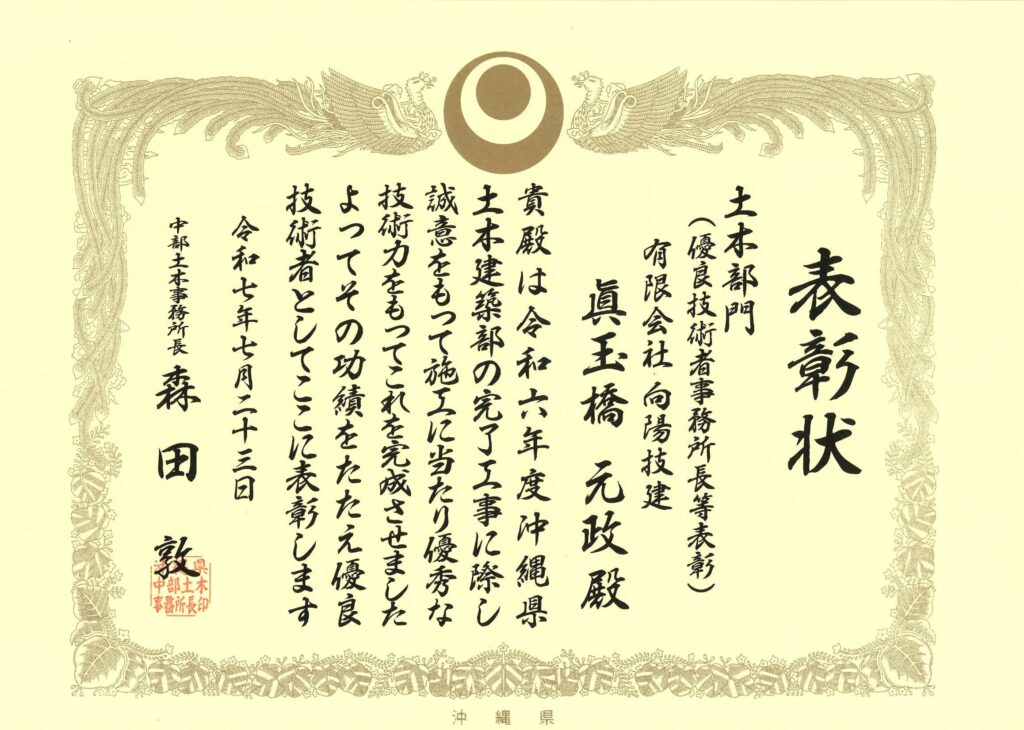 表彰状
土木部門
(優良技術者事務所長等表彰)
有限会社 向陽技建
眞玉橋 元政 殿
貴殿は令和六年度沖縄県
土木建築部の完了工事に際し
誠意をもって施工に当たり優秀な
技術力をもってこれを完成させました
よってその功績をたたえ優良
技術者としてここに表彰します
令和七年七月二十三日
中部土木事務所長 森田 敦
沖縄県
中部土木
事務所長印
沖縄県